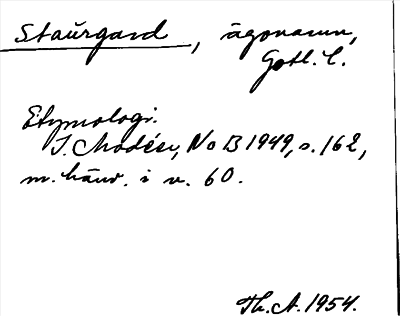 Staürgard, ägonamn,
Gotl. L.
Etymologi.
I. Modéer, NoB 1949, s. 162,
m. hänv. i n. 60.
Th. A. 1954.